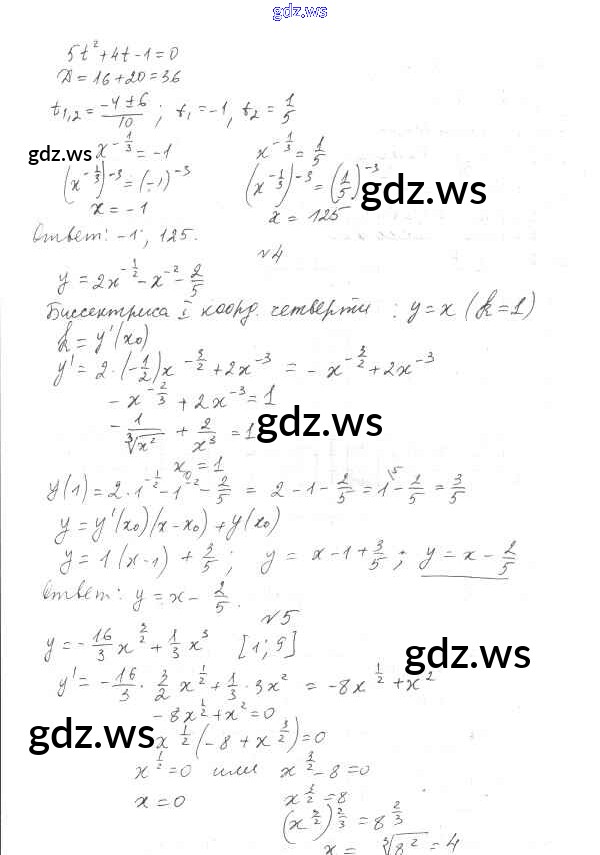 gdz.ws
5t² + 4t - 1 = 0
D = 16 + 20 = 36
t₁,₂ = (-4 ± 6)/10 ; t₁ = -1, t₂ = 1/5
gdz.ws x^(-1/3) = -1 x^(-1/3) = 1/5
(x^(-1/3))^(-3) = (-1)^(-3) (x^(-1/3))^(-3) = (1/5)^(-3) gdz.ws
x = -1 x = 125
Ответ: -1; 125.
№4
y = 2x^(-1/2) - x^(-2) - 2/5
Биссектриса I коорд. четверти : y = x (k = 1)
k = y'(x₀)
y' = 2·(-1/2)x^(-3/2) + 2x^(-3) = -x^(-3/2) + 2x^(-3)
-x^(-2/3) + 2x^(-3) = 1
-1/∛(x²) + 2/x³ = 1 gdz.ws
x₀ = 1
y(1) = 2·1^(-1/2) - 1^(-2) - 2/5 = 2 - 1 - 2/5 = 1\5 - 2/5 = 3/5
y = y'(x₀)(x - x₀) + y(x₀)
y = 1(x - 1) + 3/5 ; y = x - 1 + 3/5 ; y = x - 2/5
Ответ: y = x - 2/5.
№5
y = -16/3 x^(3/2) + 1/3 x³ [1; 9]
gdz.ws
y' = -16/3 · 3/2 x^(1/2) + 1/3 · 3x² = -8x^(1/2) + x²
-8x^(1/2) + x² = 0
gdz.ws x^(1/2)(-8 + x^(3/2)) = 0
x^(1/2) = 0 или x^(3/2) - 8 = 0
x = 0 x^(3/2) = 8
(x^(3/2))^(2/3) = 8^(2/3) gdz.ws
x = ∛(8²) = 4